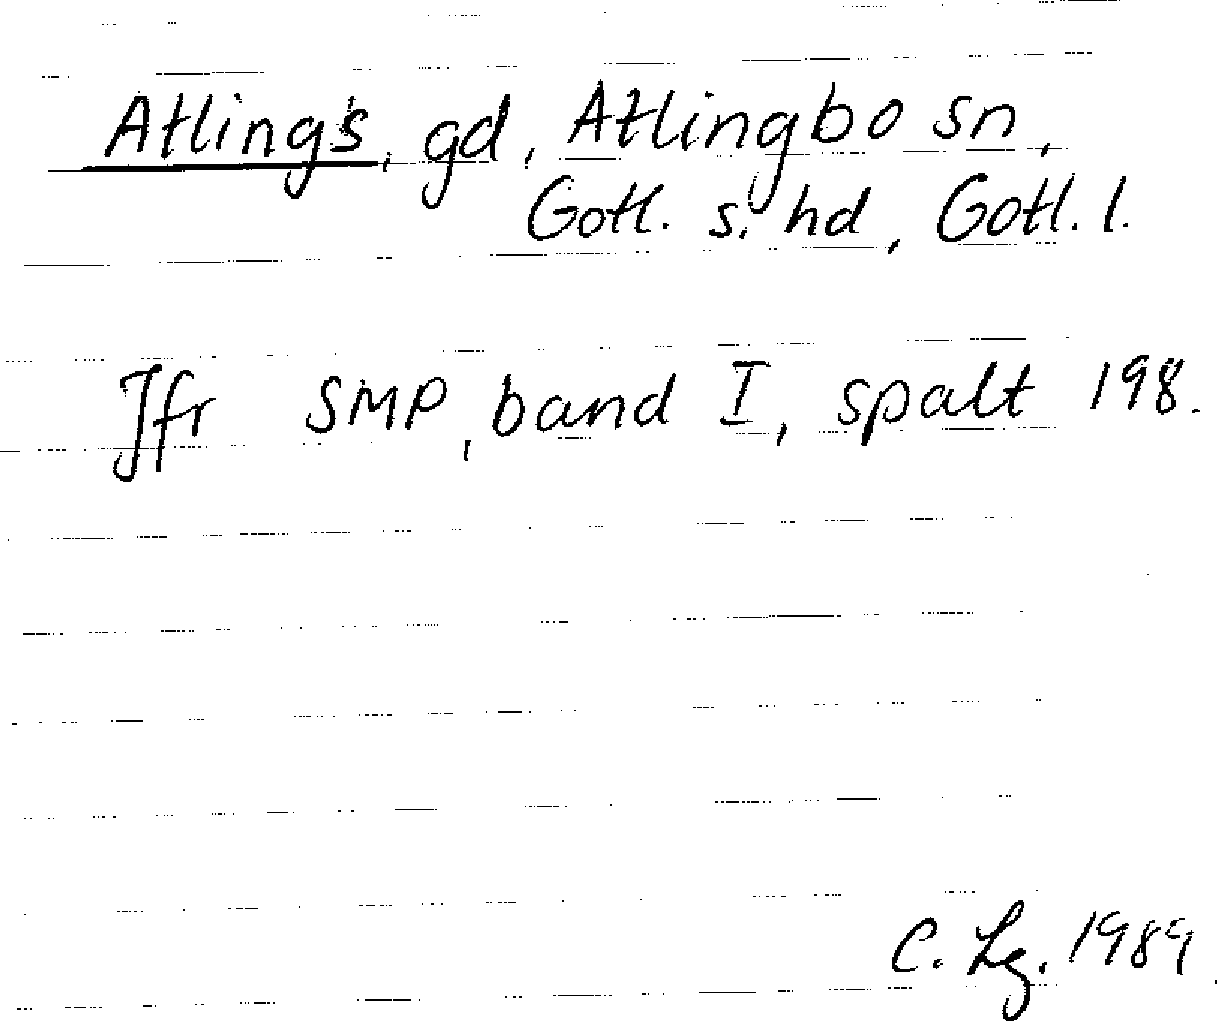 Atlings, gd, Atlingbo sn,
Gotl. s. hd, Gotl. l.
Jfr SMP, band I, spalt 198.
C. Lg. 1989.